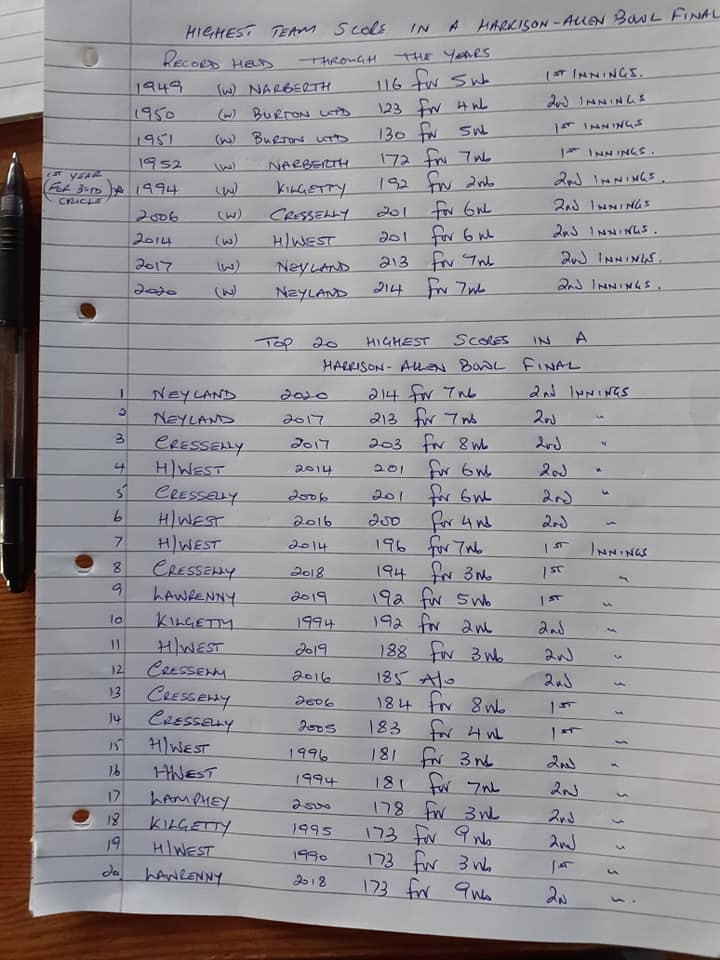 HIGHEST TEAM SCORE IN A HARRISON-ALLEN BOWL FINAL
RECORD HELD THROUGH THE YEARS
1949 (W) NARBERTH 116 for 5 wb 1ST INNINGS.
1950 (W) BURTON UTD 123 for 4 wb 2nd INNINGS
1951 (W) BURTON UTD 130 for 5wb 1ST INNINGS.
1952 (W) NARBERTH 172 for 7wb 1ST INNINGS.
1ST YEAR
(FOR 30YD) * 1994 (W) KILGETTY 192 for 2wb 2nd INNINGS.
CIRCLE
2006 (W) CRESSELLY 201 for 6wb 2nd INNINGS
2014 (W) H/WEST 201 for 6 wb 2nd INNINGS.
2017 (W) NEYLAND 213 for 7wb 2nd INNINGS.
2020 (W) NEYLAND 214 for 7wb 2nd INNINGS.
TOP 20 HIGHEST SCORES IN A
HARRISON-ALLEN BOWL FINAL
1 NEYLAND 2020 214 for 7wb 2nd INNINGS
2 NEYLAND 2017 213 for 7wb 2nd "
3 CRESSELLY 2017 203 for 8wb 2nd "
4 H/WEST 2014 201 for 6wb 2nd "
5 CRESSELLY 2006 201 for 6wb 2nd "
6 H/WEST 2016 200 for 4wb 2nd "
7 H/WEST 2014 196 for 7wb 1ST INNINGS
8 CRESSELLY 2018 194 for 3wb 1ST "
9 LAWRENNY 2019 192 for 5wb 1ST "
10 KILGETTY 1994 192 for 2wb 2nd "
11 H/WEST 2019 188 for 3wb 2nd "
12 CRESSELLY 2016 185 A/o 2nd "
13 CRESSELLY 2006 184 for 8wb 1ST "
14 CRESSELLY 2005 183 for 4wb 1ST "
15 H/WEST 1996 181 for 3wb 2nd "
16 H/WEST 1994 181 for 7wb 2nd "
17 LAMPHEY 2500 178 for 3wb 2nd "
18 KILGETTY 1995 173 for 9wb 2nd "
19 H/WEST 1990 173 for 3wb 1ST "
20 LAWRENNY 2018 173 for 9wb 2N "